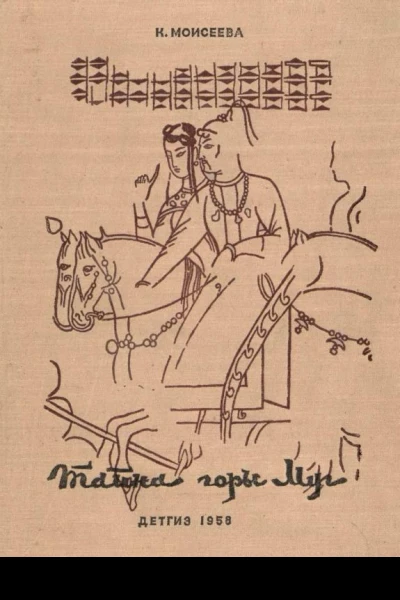 К. МОИСЕЕВА
Тайна горы Муг
ДЕТГИЗ 1958